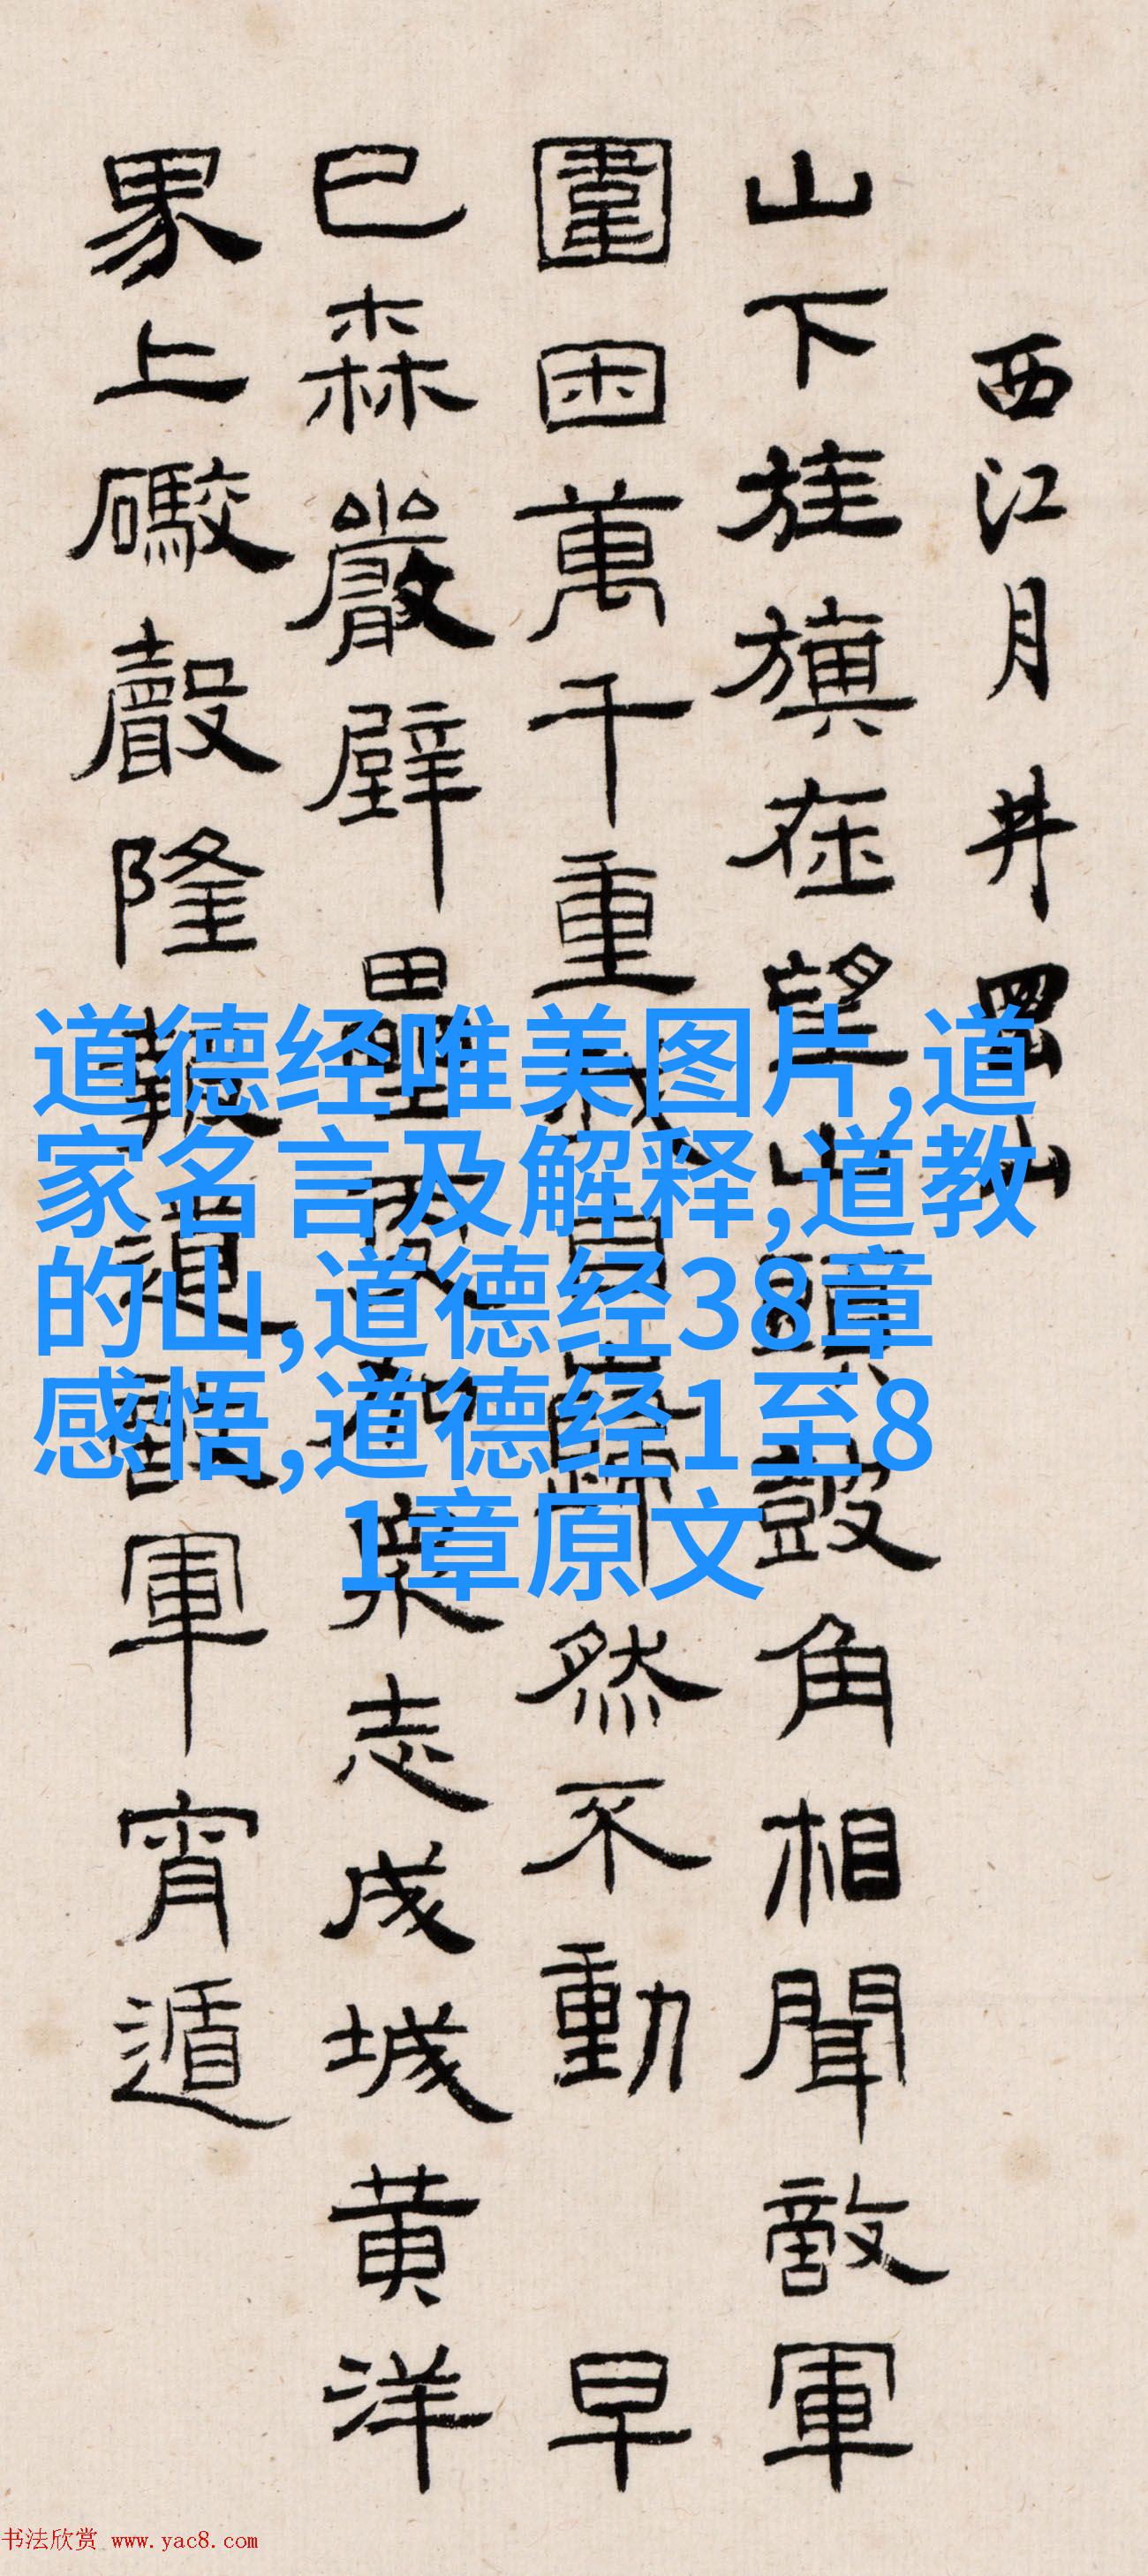 西江月井岡山
山下旌旗在望山頭鼓角相聞敵軍
圍困萬千重我自巋然不動 早
已森嚴壁壘更加衆志成城黄洋
界上礮聲隆報道敵軍宵遁
道德经唯美图片,道
家名言及解释,道教
的山,道德经38章
感悟,道德经1至8
1章原文
书法欣赏 www.yac8.com